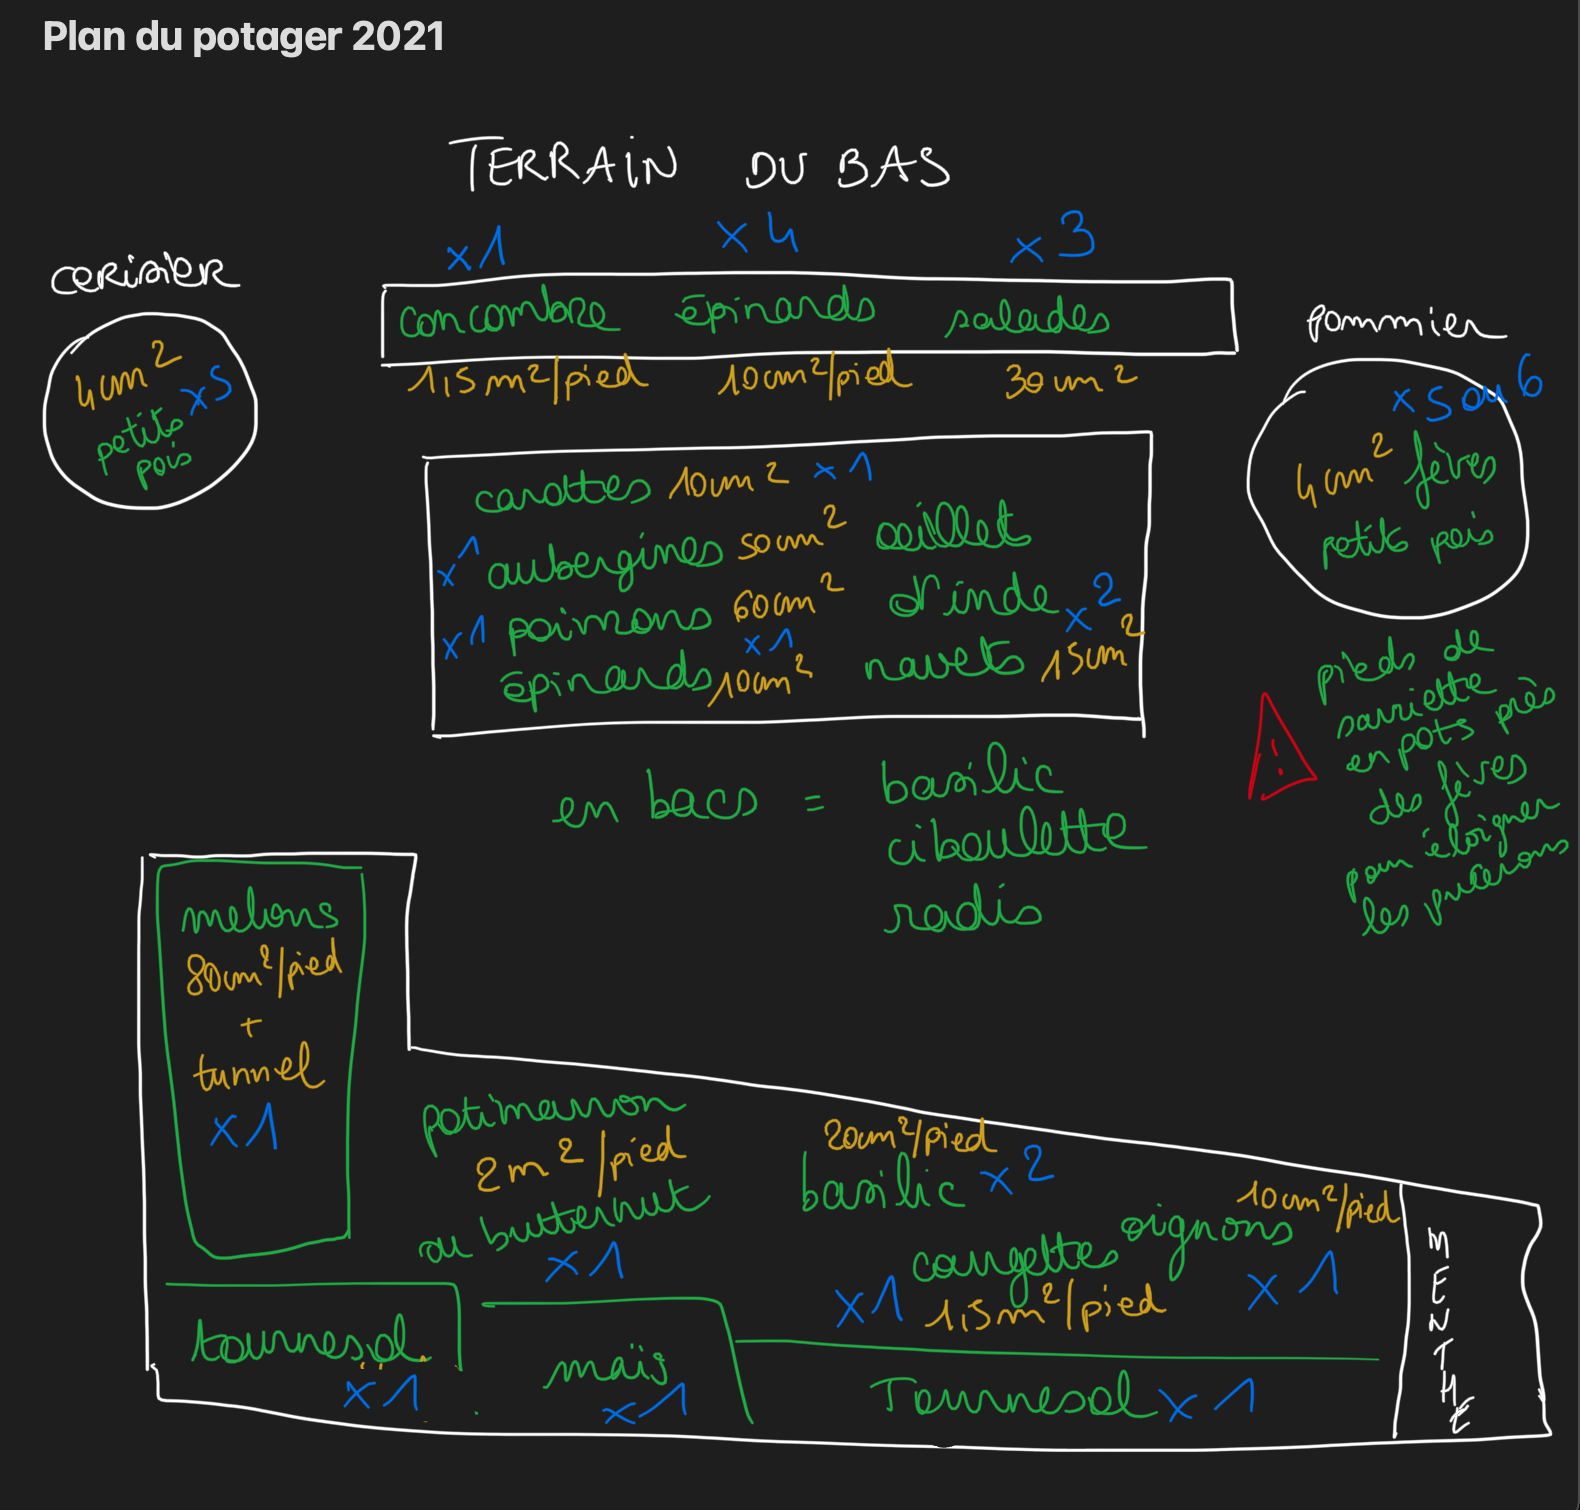 Plan du potager 2021
TERRAIN DU BAS
x1 x4 x3
cerisier
concombre épinards salades
1,5m²/pied 10cm²/pied 30cm²
4cm²
x5
petits
pois
pommier
x5 ou 6
4cm² fèves
petits pois
carottes 10cm² x1
x1 aubergines 50cm² oeillet
x1 poivrons 60cm² d'inde x2
x1
épinards 10cm² navets 15cm²
pieds de
sarriette
en pots près
des fèves
pour éloigner
les pucerons
!
en bacs = basilic
ciboulette
radis
melons
80cm²/pied
+
tunnel
x1
potimarron
2m²/pied
ou butternut
x1
20cm²/pied
basilic x2
10cm²/pied
oignons
x1
courgettes
x1 1,5m²/pied
tournesol
x1
maïs
x1
Tournesol x1
MENTHE